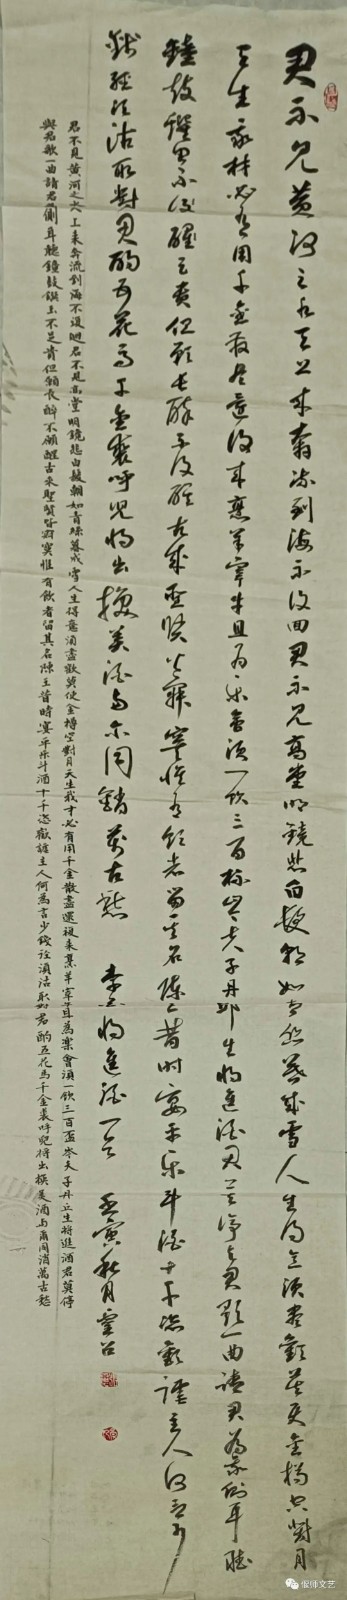 君不見黃河之水天上來奔流到海不復回君不見高堂明鏡悲白髮朝如青絲暮成雪人生得意須盡歡莫使金樽空對月
天生我材必有用千金散盡還復來烹羊宰牛且為樂會須一飲三百杯岑夫子丹邱生將進酒君莫停與君歌一曲請君為我側耳聽
鐘鼓饌玉不足貴但願長醉不復醒古來聖賢皆寂寞惟有飲者留其名陳王昔時宴平樂斗酒十千恣歡謔主人何言少
錢徑須沽取對君酌五花馬千金裘呼兒將出換美酒與爾同銷萬古愁 李白將進酒一首 壬寅秋月
君不見黃河之水天上來奔流到海不復迴君不見高堂明鏡悲白髮朝如青絲暮成雪人生得意須盡歡莫使金樽空對月天生我才必有用千金散盡還複來烹羊宰牛且為樂會須一飲三百盃岑夫子丹丘生將進酒君莫停
與君歌一曲請君側耳聽鐘鼓饌玉不足貴但願長醉不願醒古來聖賢皆寂寞惟有飲者留其名陳王昔時宴平樂斗酒十千恣歡謔主人何為言少錢徑須沽取對君酌五花馬千金裘呼兒將出換美酒与爾同消萬古愁
偃师文艺